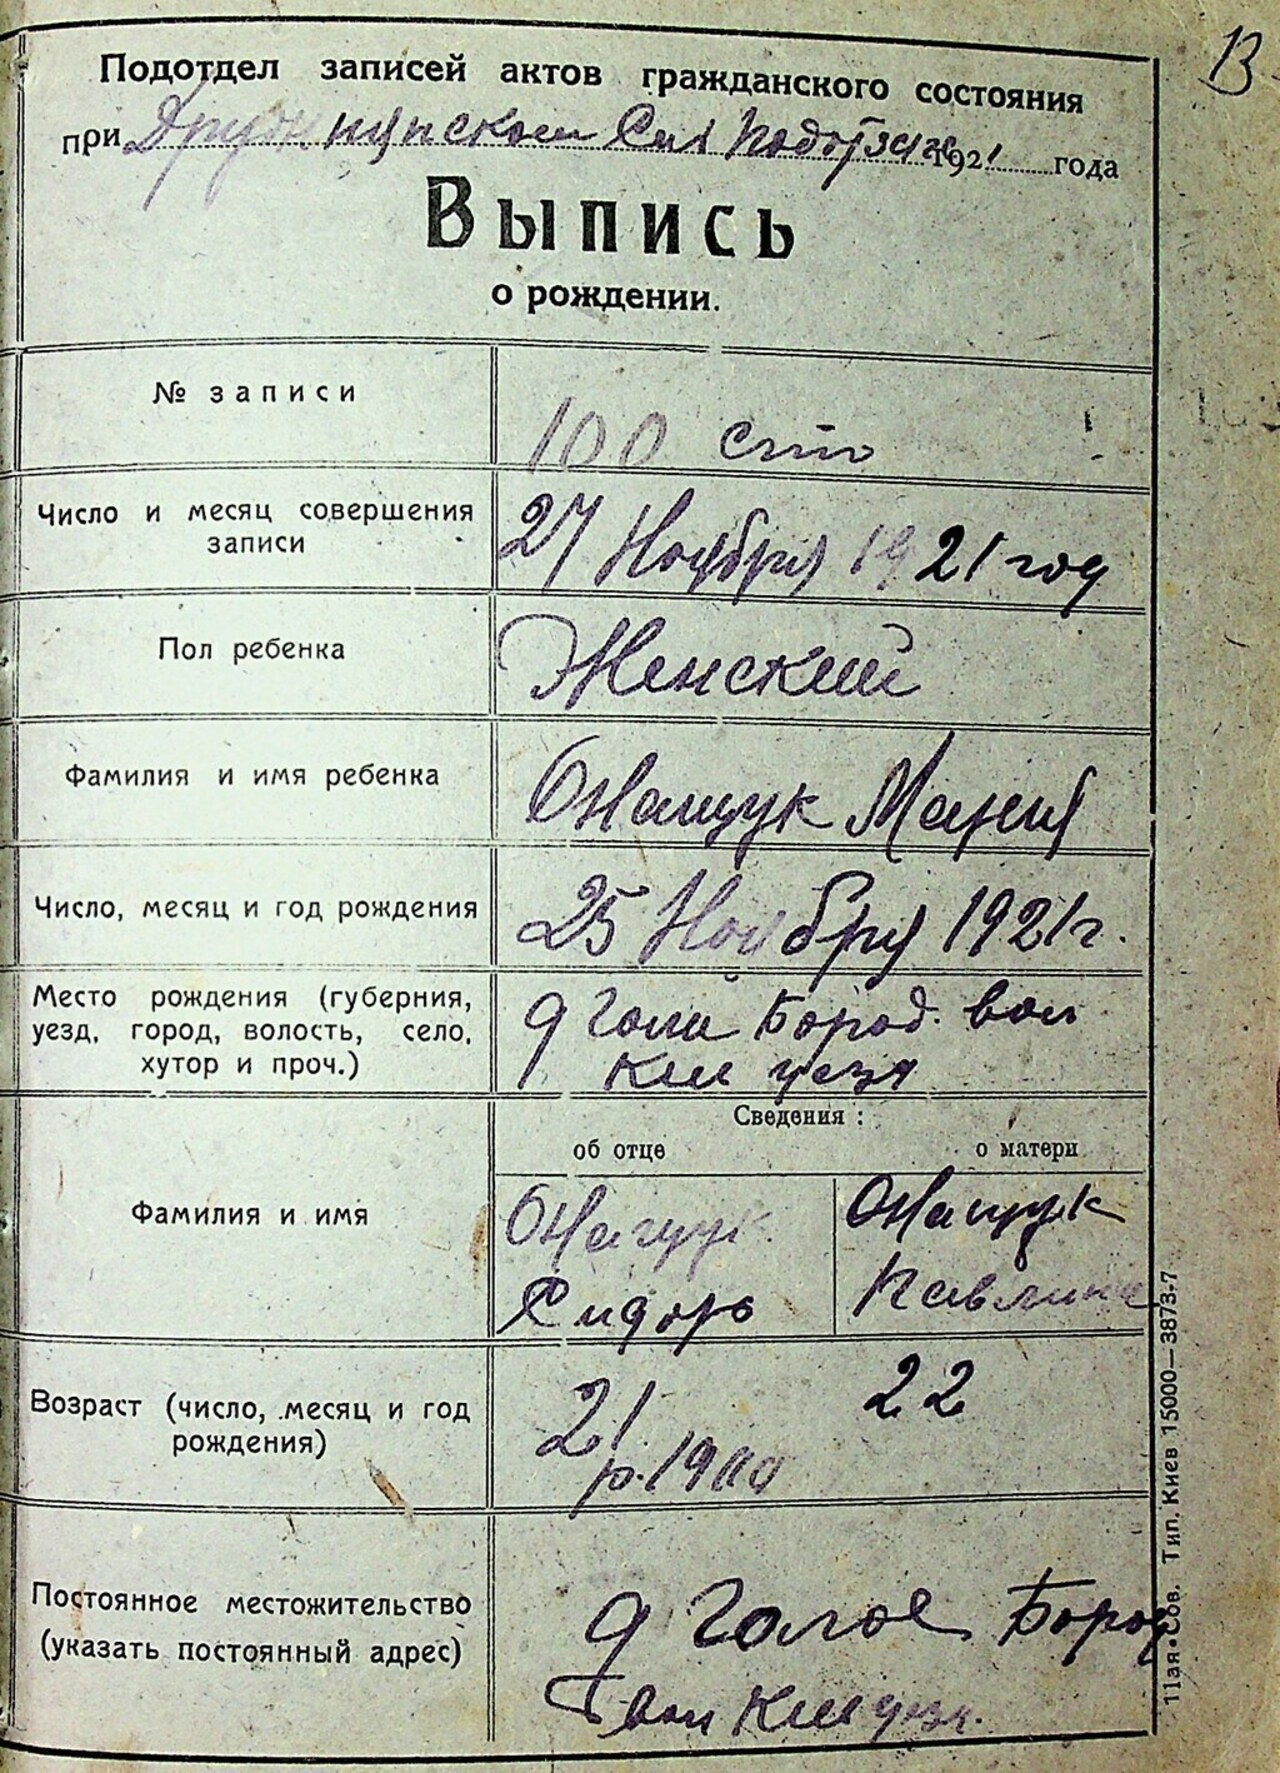 13
Подотдел записей актов гражданского состояния
при 1921 года
Выпись
о рождении.
№ записи
100 сто
Число и месяц совершения
записи
27 Ноября 1921 год
Пол ребенка
Женский
Фамилия и имя ребенка
Онащук Мария
Число, месяц и год рождения
25 Ноября 1921 г.
Место рождения (губерния,
уезд, город, волость, село,
хутор и проч.)
д Голи Бород. вол
уезд
Сведения :
об отце о матери
Фамилия и имя
Онащук Онащук
Сидорь Павлина
Возраст (число, месяц и год
рождения)
21 22
р. 1900
Постоянное местожительство
(указать постоянный адрес)
д Голое Бород
вол уезд.
11ая Сов. Тип. Киев 15000—3873-7